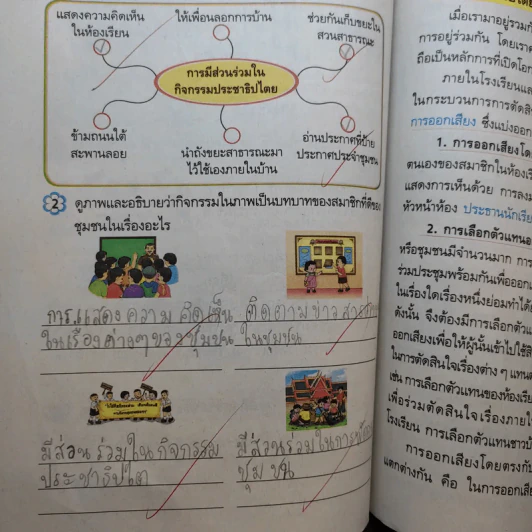 แสดงความคิดเห็น
ในห้องเรียน
ให้เพื่อนลอกการบ้าน
ช่วยกันเก็บขยะใน
สวนสาธารณะ
การมีส่วนร่วมใน
กิจกรรมประชาธิปไตย
ข้ามถนนใต้
สะพานลอย
นำถังขยะสาธารณะมา
ไว้ใช้เองภายในบ้าน
อ่านประกาศที่ป้าย
ประกาศประจำชุมชน
2 ดูภาพและอธิบายว่ากิจกรรมในภาพเป็นบทบาทของสมาชิกที่ดีของ
ชุมชนในเรื่องอะไร
การแสดงความคิดเห็น
ในเรื่องต่างๆของชุมชน
ติดตามข่าวสาร
ในชุมชน
มีส่วนร่วมในกิจกรรม
ประชาธิปไต
มีส่วนร่วมในการ
ชุมชน
เมื่อเรามาอยู่รวมกัน
การอยู่ร่วมกัน โดยเรา
ถือเป็นหลักการที่เปิดโอก
ภายในโรงเรียนและ
ในกระบวนการการตัดสิน
การออกเสียง ซึ่งแบ่งออก
1. การออกเสียงโด
ตนเองของสมาชิกในห้องเรี
แสดงการเห็นด้วย การลงม
หัวหน้าห้อง ประธานนักเรีย
2. การเลือกตัวแทนออ
หรือชุมชนมีจำนวนมาก การ
ร่วมประชุมพร้อมกันเพื่อออกเ
ในเรื่องใดเรื่องหนึ่งย่อมทำได้
ดังนั้น จึงต้องมีการเลือกตัวแ
ออกเสียงเพื่อให้ผู้นั้นเข้าไปใช้สิ
ในการตัดสินใจเรื่องต่าง ๆ แทนต
เช่น การเลือกตัวแทนของห้องเรีย
เพื่อร่วมตัดสินใจเรื่องภายใน
โรงเรียน การเลือกตัวแทนชาวบ้
การออกเสียงโดยตรงกับ
แตกต่างกัน คือ ในการออกเสีย